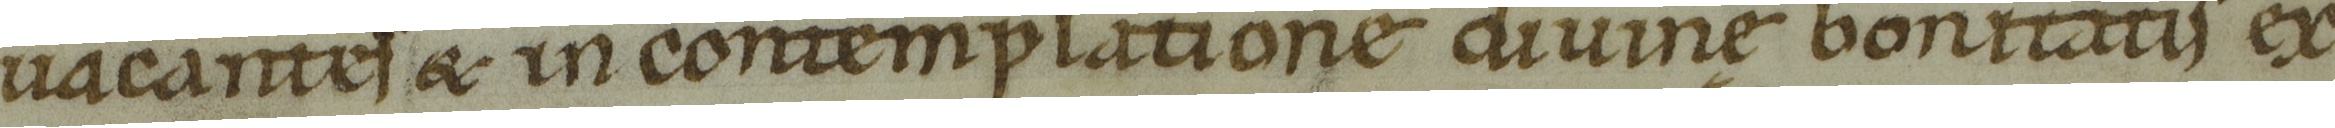 uacantes & in contemplatione diuinę bonitatis ex